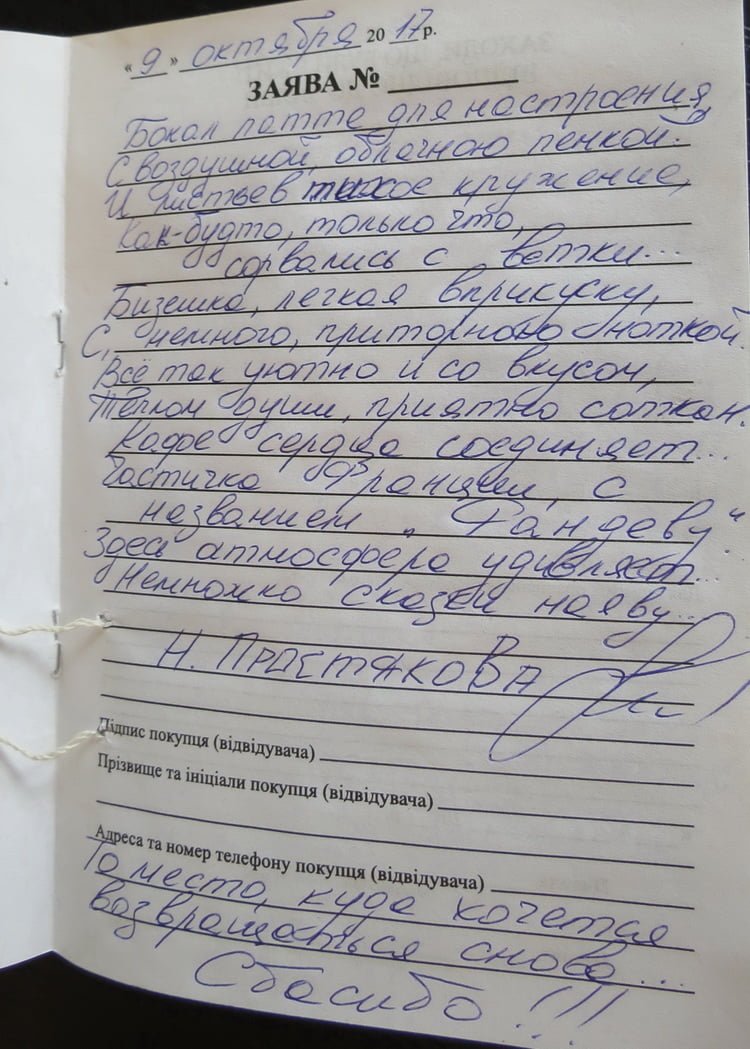 «9» октября 2017р.
ЗАЯВА №
Бокал латте для настроения,
С воздушной, облачною пенкой.
И листьев тихое кружение,
Как-будто, только что,
сорвались с ветки...
Бизешка, легкая вприкуску,
С, немного, приторною ноткой.
Всё так уютно и со вкусом,
Теплом души, приятно соткан.
Кафе сердца соединяет...
Частичка Франции, с
названием „Рандеву"
Здесь атмосфера удивляет...
Немножко сказки наяву...
Н. ПРОСТЯКОВА
Підпис покупця (відвідувача)
Прізвище та ініціали покупця (відвідувача)
Адреса та номер телефону покупця (відвідувача)
То место, куда хочется
возвращаться снова...
Спасибо!!!